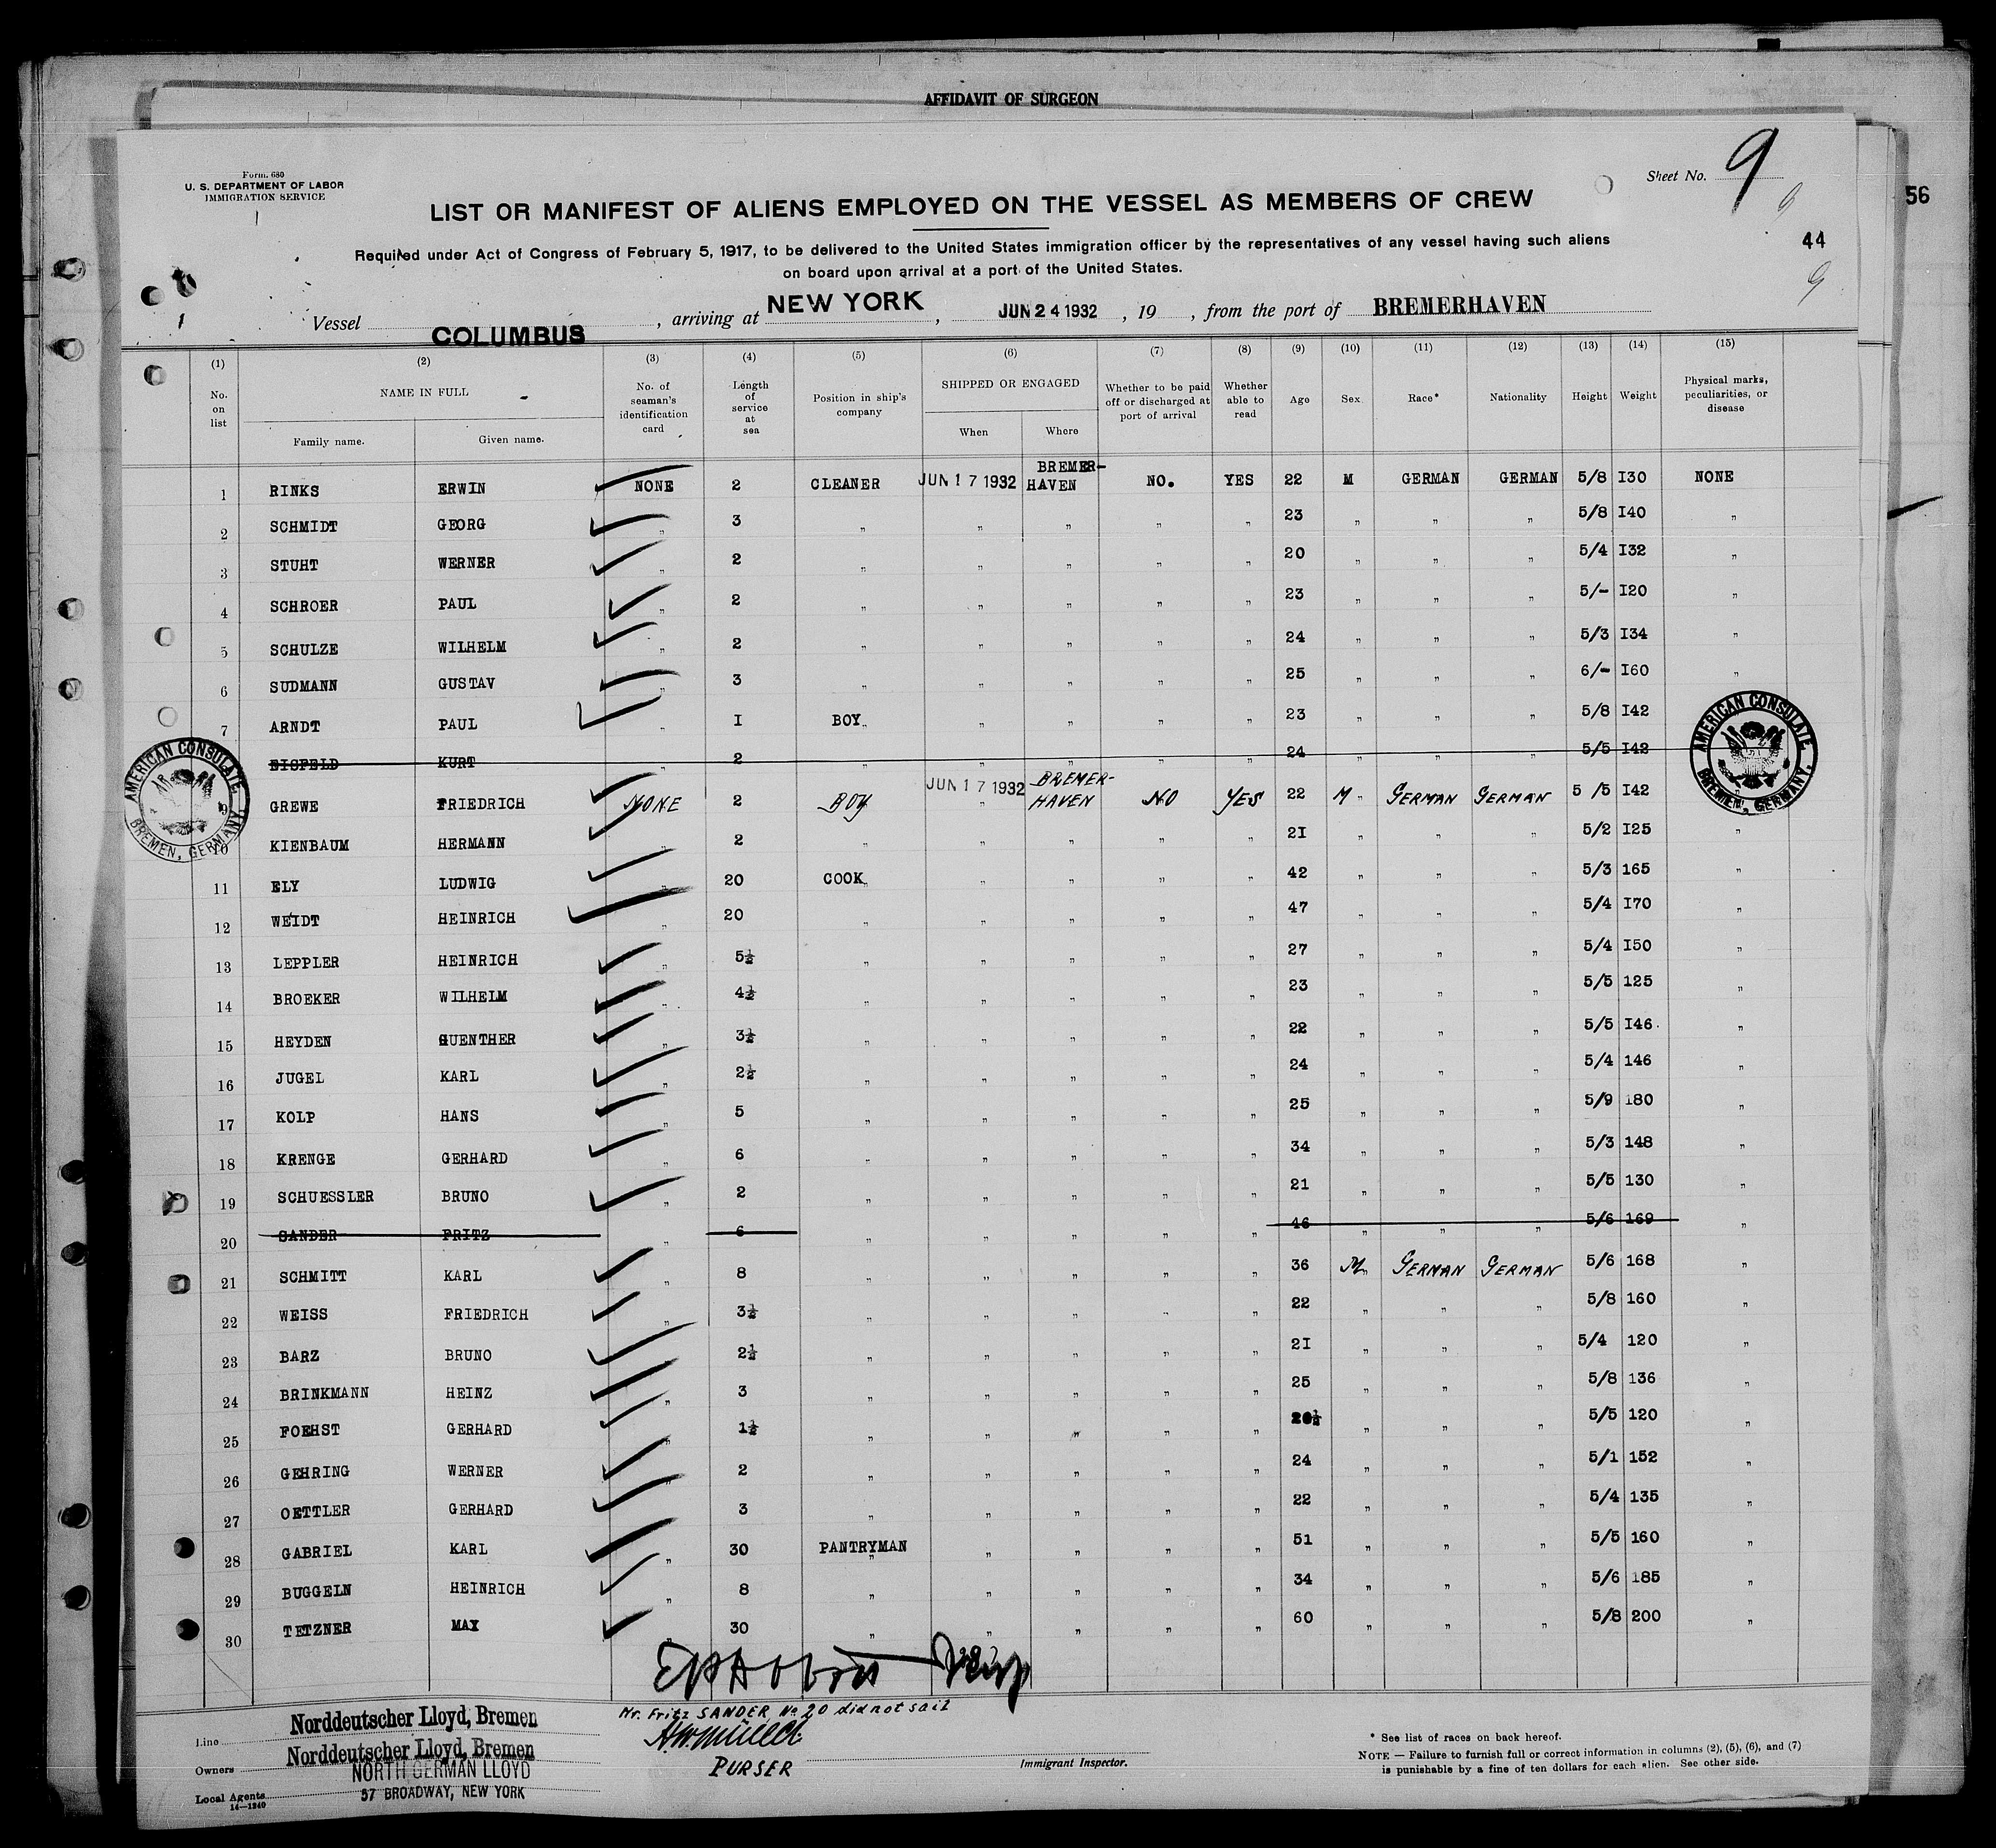 AFFIDAVIT OF SURGEON
Form. 680
U. S. DEPARTMENT OF LABOR
IMMIGRATION SERVICE
Sheet No. 9
9
56
LIST OR MANIFEST OF ALIENS EMPLOYED ON THE VESSEL AS MEMBERS OF CREW
44
Required under Act of Congress of February 5, 1917, to be delivered to the United States immigration officer by the representatives of any vessel having such aliens
on board upon arrival at a port of the United States.
9
Vessel COLUMBUS, arriving at NEW YORK, JUN 24 1932, 19 , from the port of BREMERHAVEN
(1) (2) (3) (4) (5) (6) (7) (8) (9) (10) (11) (12) (13) (14) (15)
No. on list
NAME IN FULL
Family name. Given name.
No. of seaman's identification card
Length of service at sea
Position in ship's company
SHIPPED OR ENGAGED
When Where
Whether to be paid off or discharged at port of arrival
Whether able to read
Age
Sex
Race*
Nationality
Height
Weight
Physical marks, peculiarities, or disease
1 RINKS ERWIN NONE 2 CLEANER JUN 17 1932 BREMER-HAVEN NO. YES 22 M GERMAN GERMAN 5/8 I30 NONE
2 SCHMIDT GEORG " 3 " " " " " 23 " " " 5/8 I40 "
3 STUHT WERNER " 2 " " " " " 20 " " " 5/4 I32 "
4 SCHROER PAUL " 2 " " " " " 23 " " " 5/- I20 "
5 SCHULZE WILHELM " 2 " " " " " 24 " " " 5/3 I34 "
6 SUDMANN GUSTAV " 3 " " " " " 25 " " " 6/- I60 "
7 ARNDT PAUL " I BOY " " " " 23 " " " 5/8 I42
EISFELD KURT " 2 " " " " " 24 " " " 5/5 I42
9 GREWE FRIEDRICH NONE 2 BOY JUN 17 1932 BREMER-HAVEN NO YES 22 M GERMAN GERMAN 5/5 I42
10 KIENBAUM HERMANN 2 " " " " " 2I " " " 5/2 I25 "
11 ELY LUDWIG " 20 COOK " " " " 42 " " " 5/3 165 "
12 WEIDT HEINRICH " 20 " " " " " 47 " " " 5/4 I70 "
13 LEPPLER HEINRICH " 5½ " " " " " 27 " " " 5/4 I50 "
14 BROEKER WILHELM " 4½ " " " " " 23 " " " 5/5 125 "
15 HEYDEN GUENTHER " 3½ " " " " " 22 " " " 5/5 I46 "
16 JUGEL KARL " 2½ " " " " " 24 " " " 5/4 146 "
17 KOLP HANS " 5 " " " " " 25 " " " 5/9 180 "
18 KRENGE GERHARD " 6 " " " " " 34 " " " 5/3 148 "
19 SCHUESSLER BRUNO " 2 " " " " " 21 " " " 5/5 130 "
20 SANDER FRITZ " 6 " " " " " 46 " " " 5/6 169 "
21 SCHMITT KARL " 8 " " " " " 36 M GERMAN GERMAN 5/6 168 "
22 WEISS FRIEDRICH " 3½ " " " " " 22 " " " 5/8 160 "
23 BARZ BRUNO " 2½ " " " " " 2I " " " 5/4 120 "
24 BRINKMANN HEINZ " 3 " " " " " 25 " " " 5/8 136 "
25 FOEHST GERHARD " 1½ " " " " " 20½ " " " 5/5 120 "
26 GEHRING WERNER " 2 " " " " " 24 " " " 5/1 152 "
27 OETTLER GERHARD " 3 " " " " " 22 " " " 5/4 135 "
28 GABRIEL KARL " 30 PANTRYMAN " " " " 51 " " " 5/5 160 "
29 BUGGELN HEINRICH " 8 " " " " " 34 " " " 5/6 185 "
30 TETZNER MAX " 30 " " " " " 60 " " " 5/8 200 "
AMERICAN CONSULATE BREMEN, GERMANY
AMERICAN CONSULATE BREMEN, GERMANY.
Mr. Fritz SANDER No 20 did not sail
PURSER
Line Norddeutscher Lloyd, Bremen
Owners Norddeutscher Lloyd, Bremen
NORTH GERMAN LLOYD
Local Agents 57 BROADWAY, NEW YORK
14—1240
Immigrant Inspector.
* See list of races on back hereof.
NOTE — Failure to furnish full or correct information in columns (2), (5), (6), and (7)
is punishable by a fine of ten dollars for each alien. See other side.